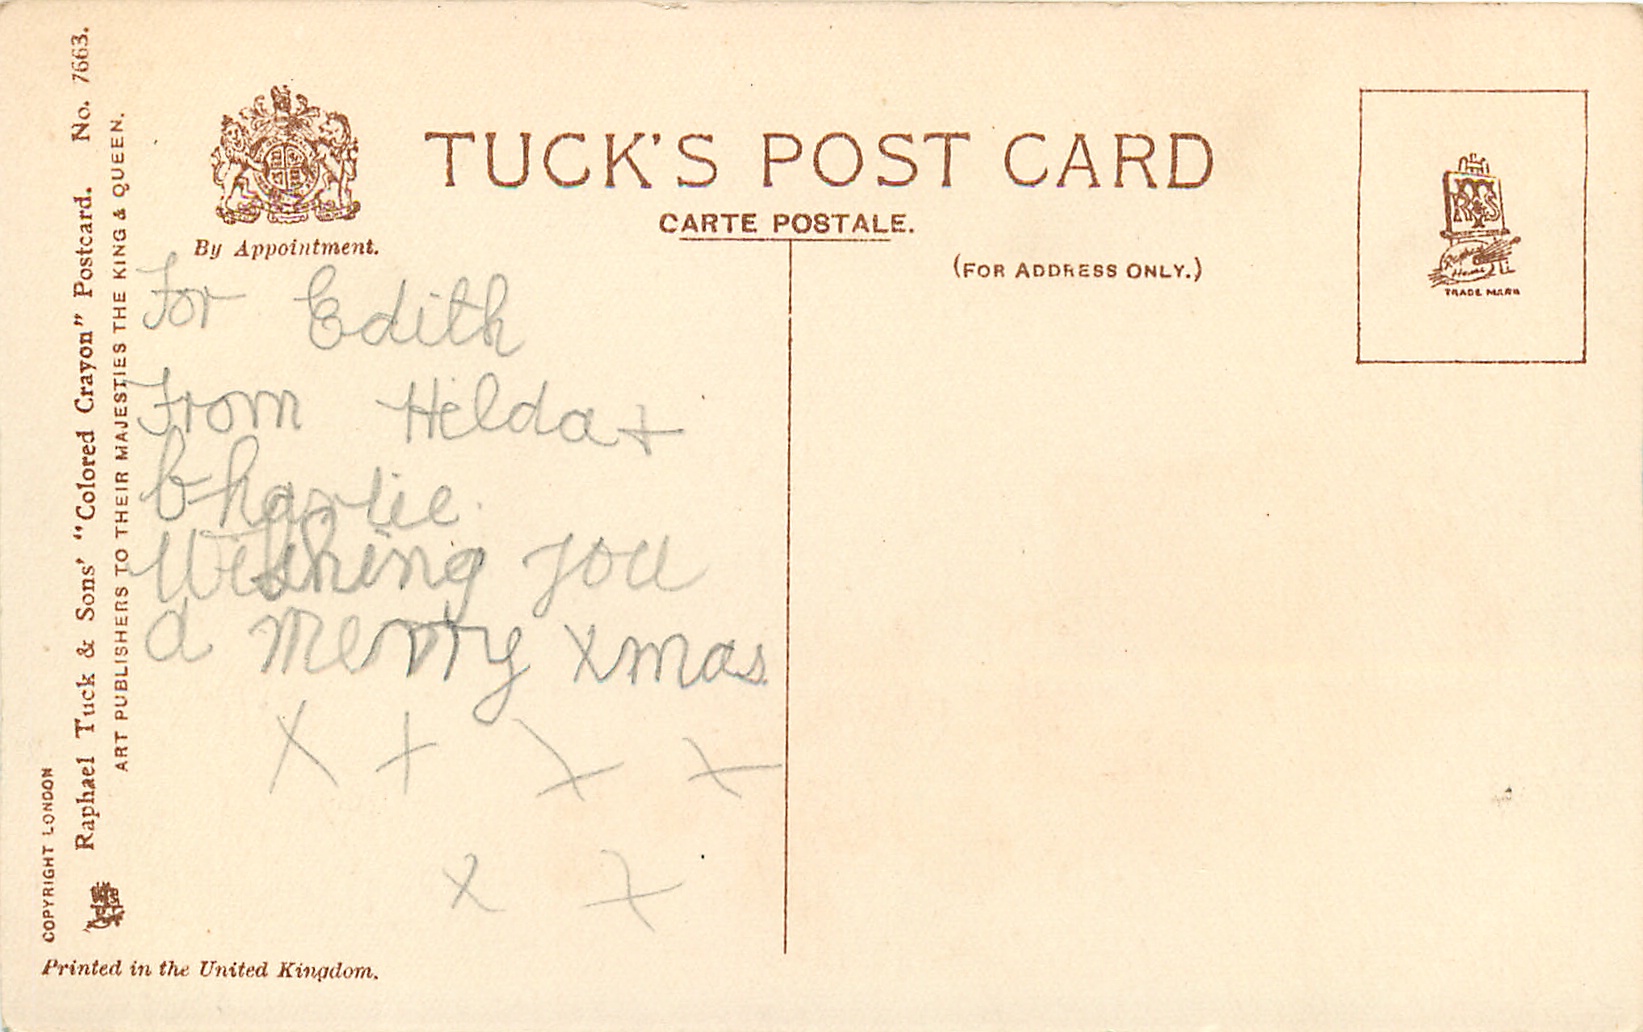 TUCK'S POST CARD
CARTE POSTALE.
By Appointment.
(FOR ADDRESS ONLY.)
TRADE MARK
For Edith
From Hilda +
Charlie.
Wishing you
a merry xmas
x + x x
x x
COPYRIGHT LONDON
Raphael Tuck & Sons' "Colored Crayon" Postcard. No. 7663.
ART PUBLISHERS TO THEIR MAJESTIES THE KING & QUEEN.
Printed in the United Kingdom.